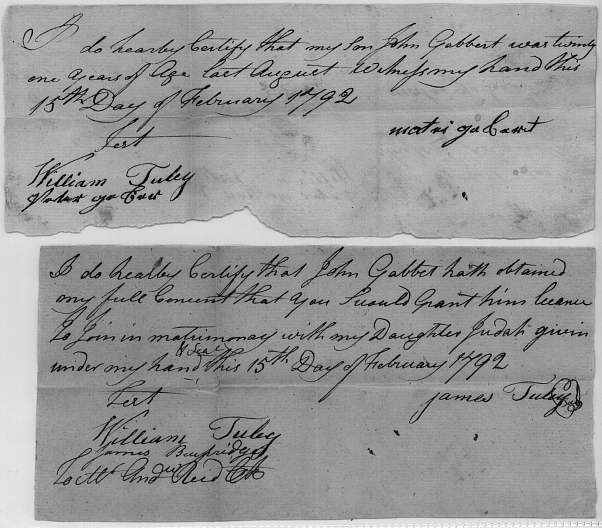 I do hearby Certify that my Son John Gabbert was twenty
one years of Age last August Witness my hand this
15th Day of February 1792
Test
William Tuley
I do hearby Certify that John Gabbet hath obtained
my full Concent that you Should Grant him licence
to Join in matrimonay with my Daughter Judah givin
under my hand & Seal this 15th Day of February 1792
Test
james Tuley
William Tuley
James
To Mr Andw Reid Clk